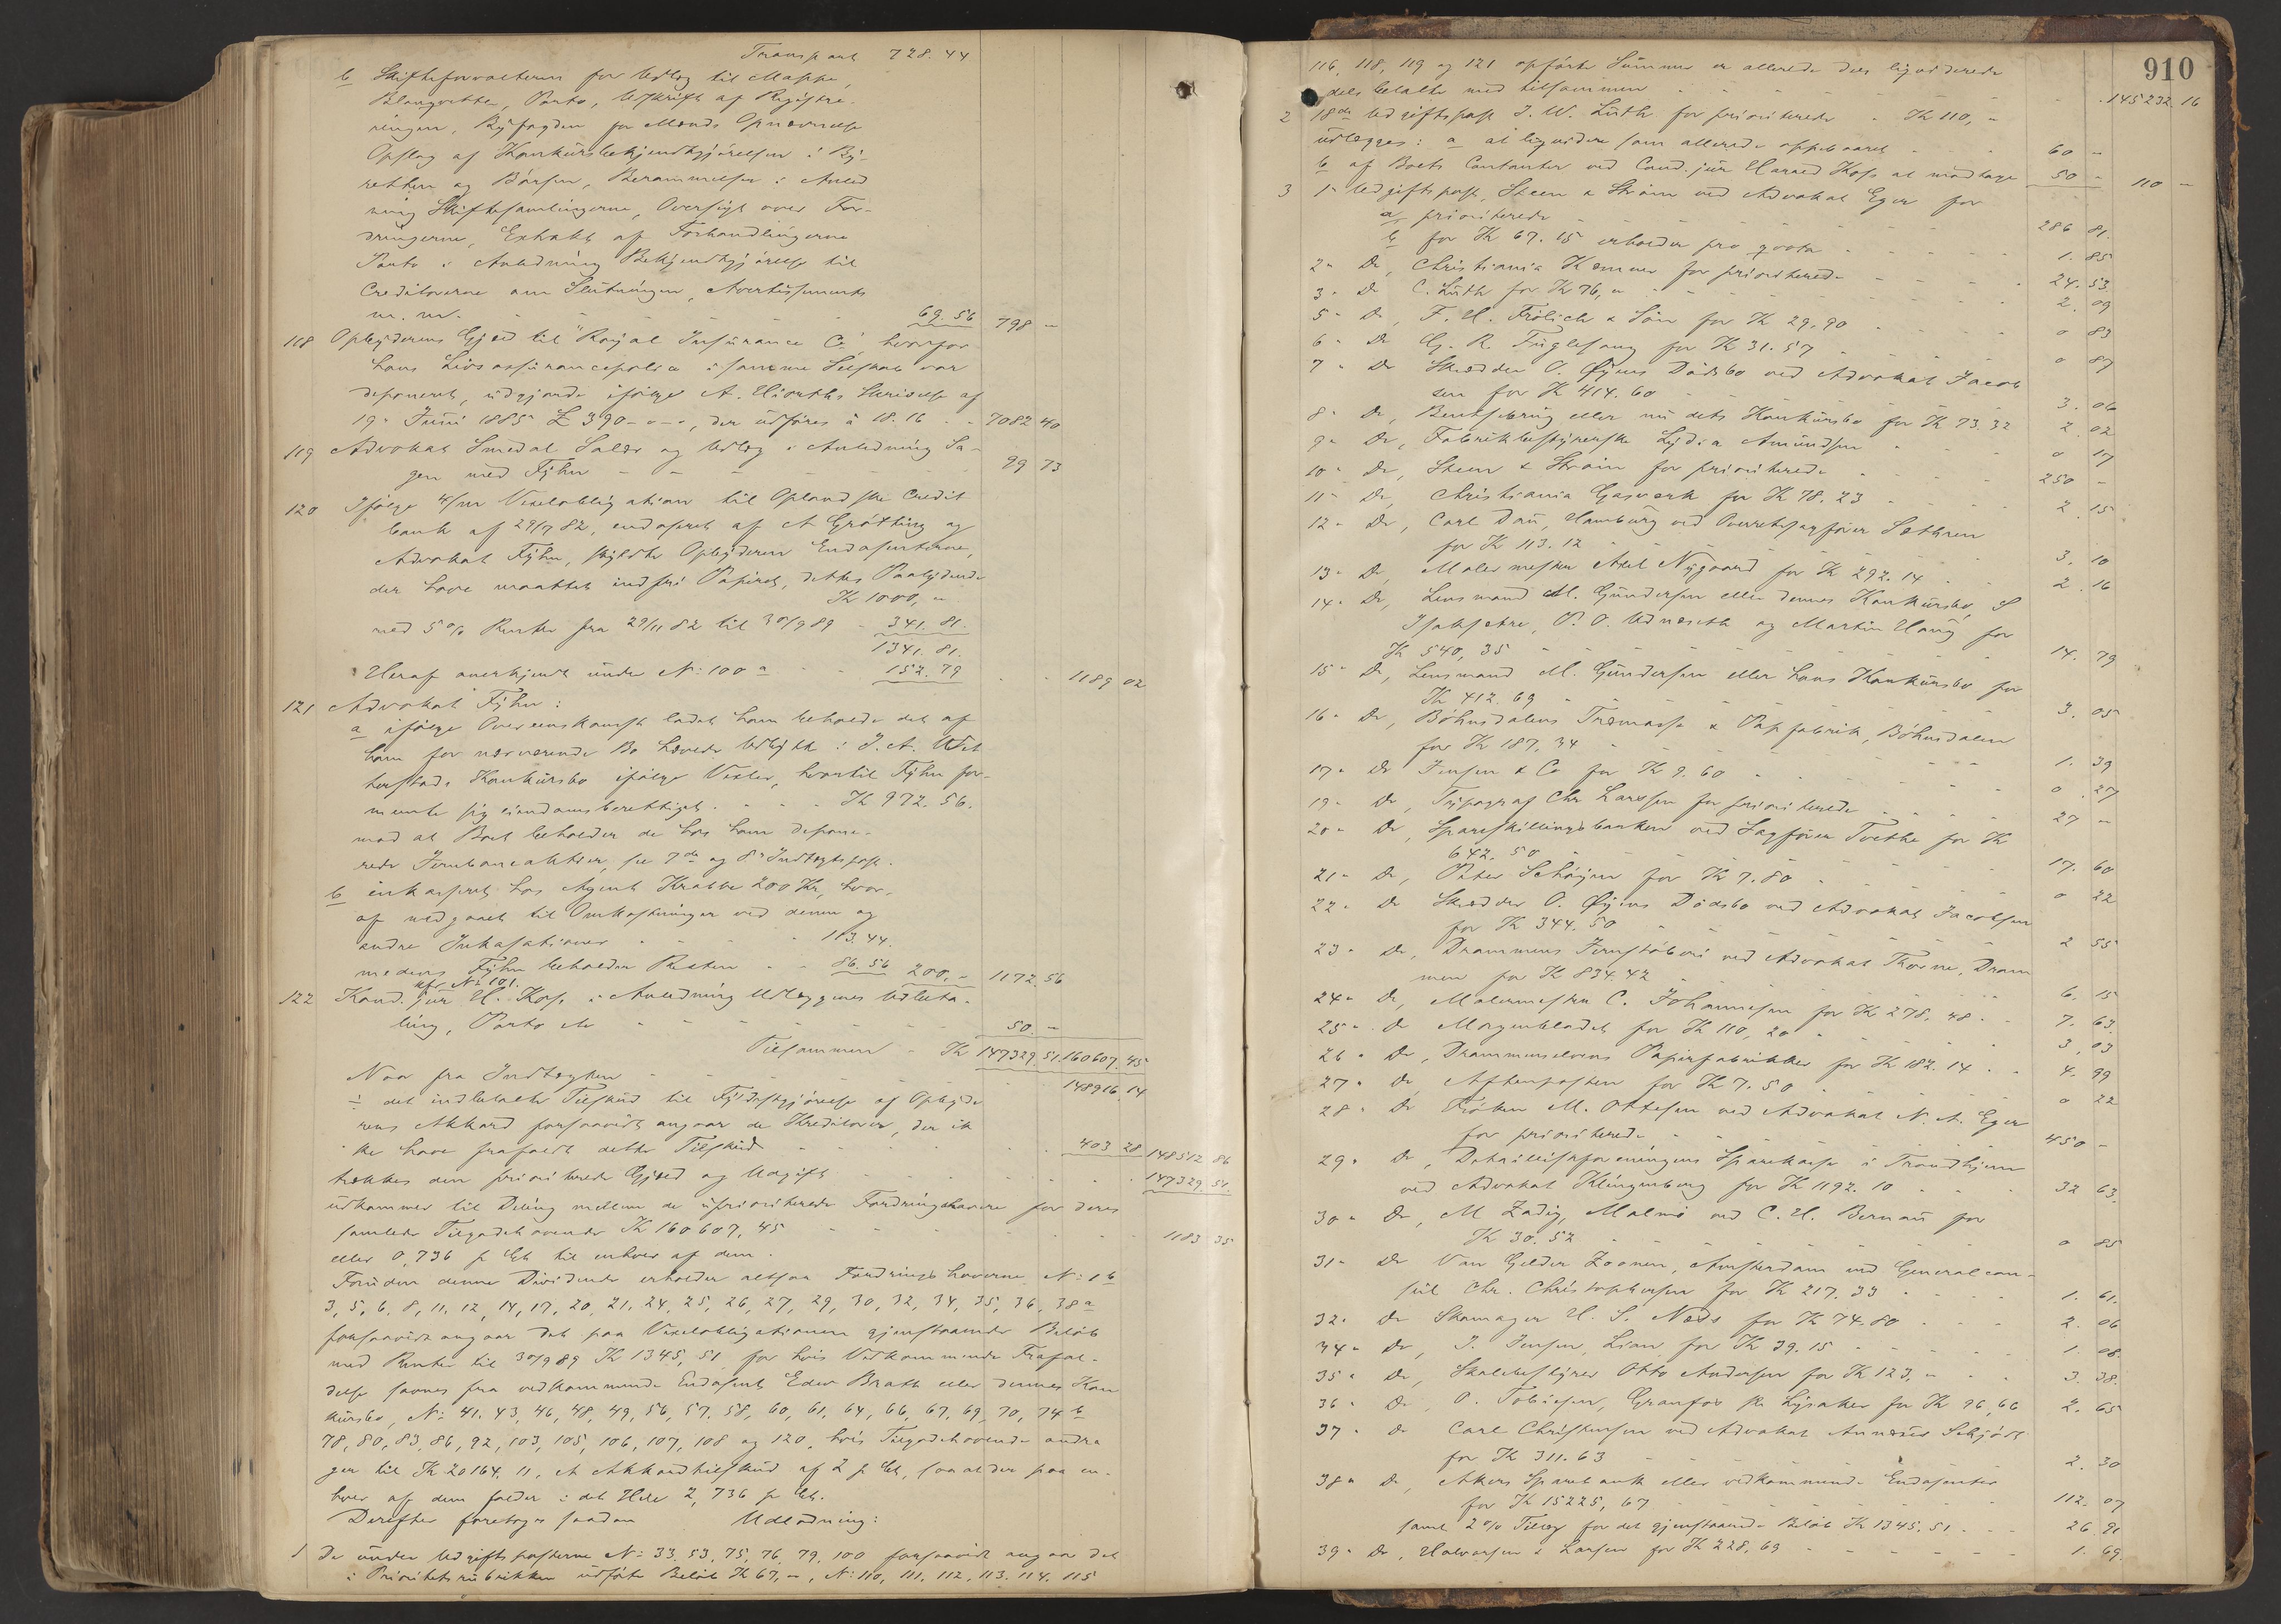 Transport 728.44
b Skifteforvalteren for Udlæg til Mappe,
Blanquetter, Porto, Udskrift af Registre-
ringen, Byfogden for Mænds Opnævnelse
Opslag af Konkursbekjendtgjørelsen i By-
retten og Børsen, Berammelsen i Anled
ning Skiftesamlingerne, Oversigt over For-
dringerne, Extrakt af Forhandlingerne
Porto i Anledning Bekjendtgjørelse til
Creditorerne om Slutningen, Avertissements
m. m. - - - - 69.56 798 -
118 Opbyderens Gjæld til "Royal Insurance Co", hvorfor
hans Livsassurancepolice i samme Selskab var
deponeret, udgjorde ifølge A. Hiorths Skrivelse af
19de Juni 1885 £ 390-0-0, der udføres à 18.16 . . 7082 40
119 Advokat Smedal Salær og Udlæg i Anledning Sa-
gen med Fyhn - - - - 99 73
120 Ifølge 4/mr Vexelobligation til Oplandske Credit
bank af 29/7 82, endosseret af A Grøtting og
Advokat Fyhn, skyldte Opbyderen Endosenterne,
der have maattet indfri Papiret, dettes Paalydende
Kr 1000, "
med 5 % Renter fra 29/11 82 til 30/9 89 - 341.81.
1341.81.
Heraf anerkjendt under No: 100 a - - 152.79 . . 1189 02
121 Advokat Fyhn:
a ifølge Overeenskomst ladet ham beholde det af
ham for nærværende Bo hævede Udbytte i J. A. Wet
herstads Konkursbo ifølge Vexler, hvortil Fyhn for-
mente sig eiendomsberettiget . . . . Kr 972.56.
mod at Boet beholder de hos ham depone-
rede Jernbaneaktier, se 7de og 8de Indtægtspost.
b inkasseret hos Agent Krabbe 200 Kr, hvor-
af medgaaet til Omkostninger ved denne og
andre Inkasationer - - - - 113.44.
medens Fyhn beholder Resten - - 86.56 200. - 1172.56
cfr. No 101.
122 Kand. jur H. Koss i Anledning Udlæggenes Udbeta-
ling, Porto etc - - - - 50. -
Tilsammen - Kr 147329.51. 160607.45
Naar fra Indtægten - - - - 148916.14
÷ det indbetalte Tilskud til Fyldestgjørelse af Opbyde
rens Akkord forsaavidt angaar de Kreditorer, der ik
ke have frafaldt dette Tilskud - - - - 403 28 148512 86
trækkes den prioriterede Gjæld og Udgift - - - - 147329.51.
udkommer til Deling mellem de uprioriterede Fordringshavere for deres
samlede Tilgodehavende Kr 160607,45 - - - - 1183 35
eller 0,736 p Ct til enhver af dem.
Foruden denne Dividende erholder altsaa Fordringshaverne No: 1 b
3, 5, 6, 8, 11, 12, 14, 17, 20, 21, 24, 25, 26, 27, 29, 30, 32, 34, 35, 36, 38 a
forsaavidt angaar det paa Vexelobligationen gjenstaaende Beløb
med Renter til 30/9 89 Kr 1345,51 for hvis Vedkommende Frafal-
delse savnes fra vedkommende Endosent Edw Brath eller dennes Kon
kursbo, No: 41, 43, 46, 48, 49, 56, 57, 58, 60, 61, 64, 66, 67, 69, 70, 74 b
78, 80, 83, 86, 92, 103, 105, 106, 107, 108 og 120, hvis Tilgodehavende andra
ger til Kr 20164.11, et Akkordtilskud af 2 p Ct, saa at der paa en-
hver af dem falder i det Hele 2,736 p Ct.
Derefter foretages saadan Udlodning:
1 De under Udgiftsposterne No: 33, 53, 75, 76, 79, 100 forsaavidt angaar det
i Prioritetsrubrikken udførte Beløb Kr 67, -, No: 110, 111, 112, 113, 114, 115
910
116, 118, 119 og 121 opførte Summer er allerede dels liqviderede
dels betalte med tilsammen - - - - 145232.16
2 18de Udgiftspost J. W. Lüth for prioriterede - Kr 110, -
udlægges: a at liqvidere som allerede oppebaaret - - 60 -
b af Boets Contanter ved Cand. jur Harald Koss at modtage 50 - 110 -
3 1ste Udgiftspost, Steen & Strøm ved Advokat Eger for
a prioriterede - - - - 286 81.
b for Kr 67.15 erholder pro qvota - - - - 1.85
2den Do, Christiania Kæmner for prioriterede - - - 24.53.
3die Do C. Lüth for Kr 76, " - - - - 2.09
5te Do, F. H. Frölich & Søn for Kr 29.90 - - - - 0 83
6te Do G. R. Fuglesang for Kr 31.57 - - - - 0 87
7de Do Skrædder O. Øyens Dødsbo ved Advokat Jacob
sen for Kr 414.60 - - - - 3.06
8de Do, Bentsebrug eller nu dets Konkursbo for Kr 73.32 2.02
9de Do, Fabrikbestyrerske Lydia Amundsen - - - 0 17
10de Do, Steen & Strøm for prioriterede - - - - 250 -
11te Do, Christiania Gasværk for Kr 78.23 - - - - 2.15
12te Do, Carl Dau, Hamburg ved Overretssagfører Sæthren
for Kr 113.12 - - - - 3.10
13de Do, Malermester Axel Nygaard for Kr 292.14 - - 2.16
14de Do, Lensmand M. Gundersen eller dennes Konkursbo, S
Isaksætre, P. O. Udnæseth og Martin Haug for
Kr 540,35 - - - - 14.79
15de Do, Lensmand M. Gundersen eller hans Konkursbo for
Kr 412.69 - - - - 3.05
16de Do, Böhnsdalens Træmasse & Papfabrik, Böhnsdalen
for Kr 187,34 - - - - 1.39
17de Do Jensen & Co for Kr 9.60 - - - - 0.27
19de Do, Typograf Chr Larssen for prioriterede - - - 27 -
20de Do, Spareskillingsbanken ved Sagfører Tvethe for Kr
642.50 - - - - 17.60
21de Do, Peter Schøyen for Kr 7.80 - - - - 0 22
22de Do Skrædder O. Øyens Dødsbo ved Advokat Jacobsen
for Kr 344.50 - - - - 2 55
23de Do, Drammens Jernstøberi ved Advokat Thorne, Dram
men for Kr 834.42 - - - - 6.15
24de Do, Malermester C. Johannesen for Kr 278.48 - - 7.63.
25de Do Morgenbladet for Kr 110,20 - - - - 3.03
26de Do, Drammenselvens Papirfabrikker for Kr 182.14 - - 4.99
27de Do, Aftenposten for Kr 7.50 - - - - 0 22
28de Do Frøken M. Ottesen ved Advokat N. A. Eger
for prioriterede - - - - 450 -
29de Do, Detaillistforeningens Sparekasse i Trondhjem
ved Advokat Klingenberg for Kr 1192.10 - - - - 32 63.
30te Do, M Zadig, Malmö ved C. H. Bernau for
Kr 30.52 - - - - 0 85
31te Do Van Gelder Zoonen, Amsterdam ved Generalcon-
sul Chr. Christophersen for Kr 217.33 - - - - 1.61.
32te Do Skomager H. S. Næds for Kr 74.80 - - - - 2.06
34te Do, J. Jensen, Lian for Kr 39.15 - - - - 1.08.
35te Do, Skolebestyrer Otto Andersen for Kr 123, " - - 3.38.
36te Do, O. Tobiesen, Granfos pr. Lysaker for Kr 96,66 2.65
37te Do Carl Christensen ved Advokat Annæus Schjødt
for Kr 311.63 - - - - 2.30
38te Do, Akers Sparebank eller vedkommende Endosenter
for Kr 15225,67 - - - - 112.07
samt 2 % Tillæg for det gjenstaaende Beløb Kr 1345.51 - - - 26.91
39te Do, Halvorsen & Larsen for Kr 228,69 - - - - 1.69.